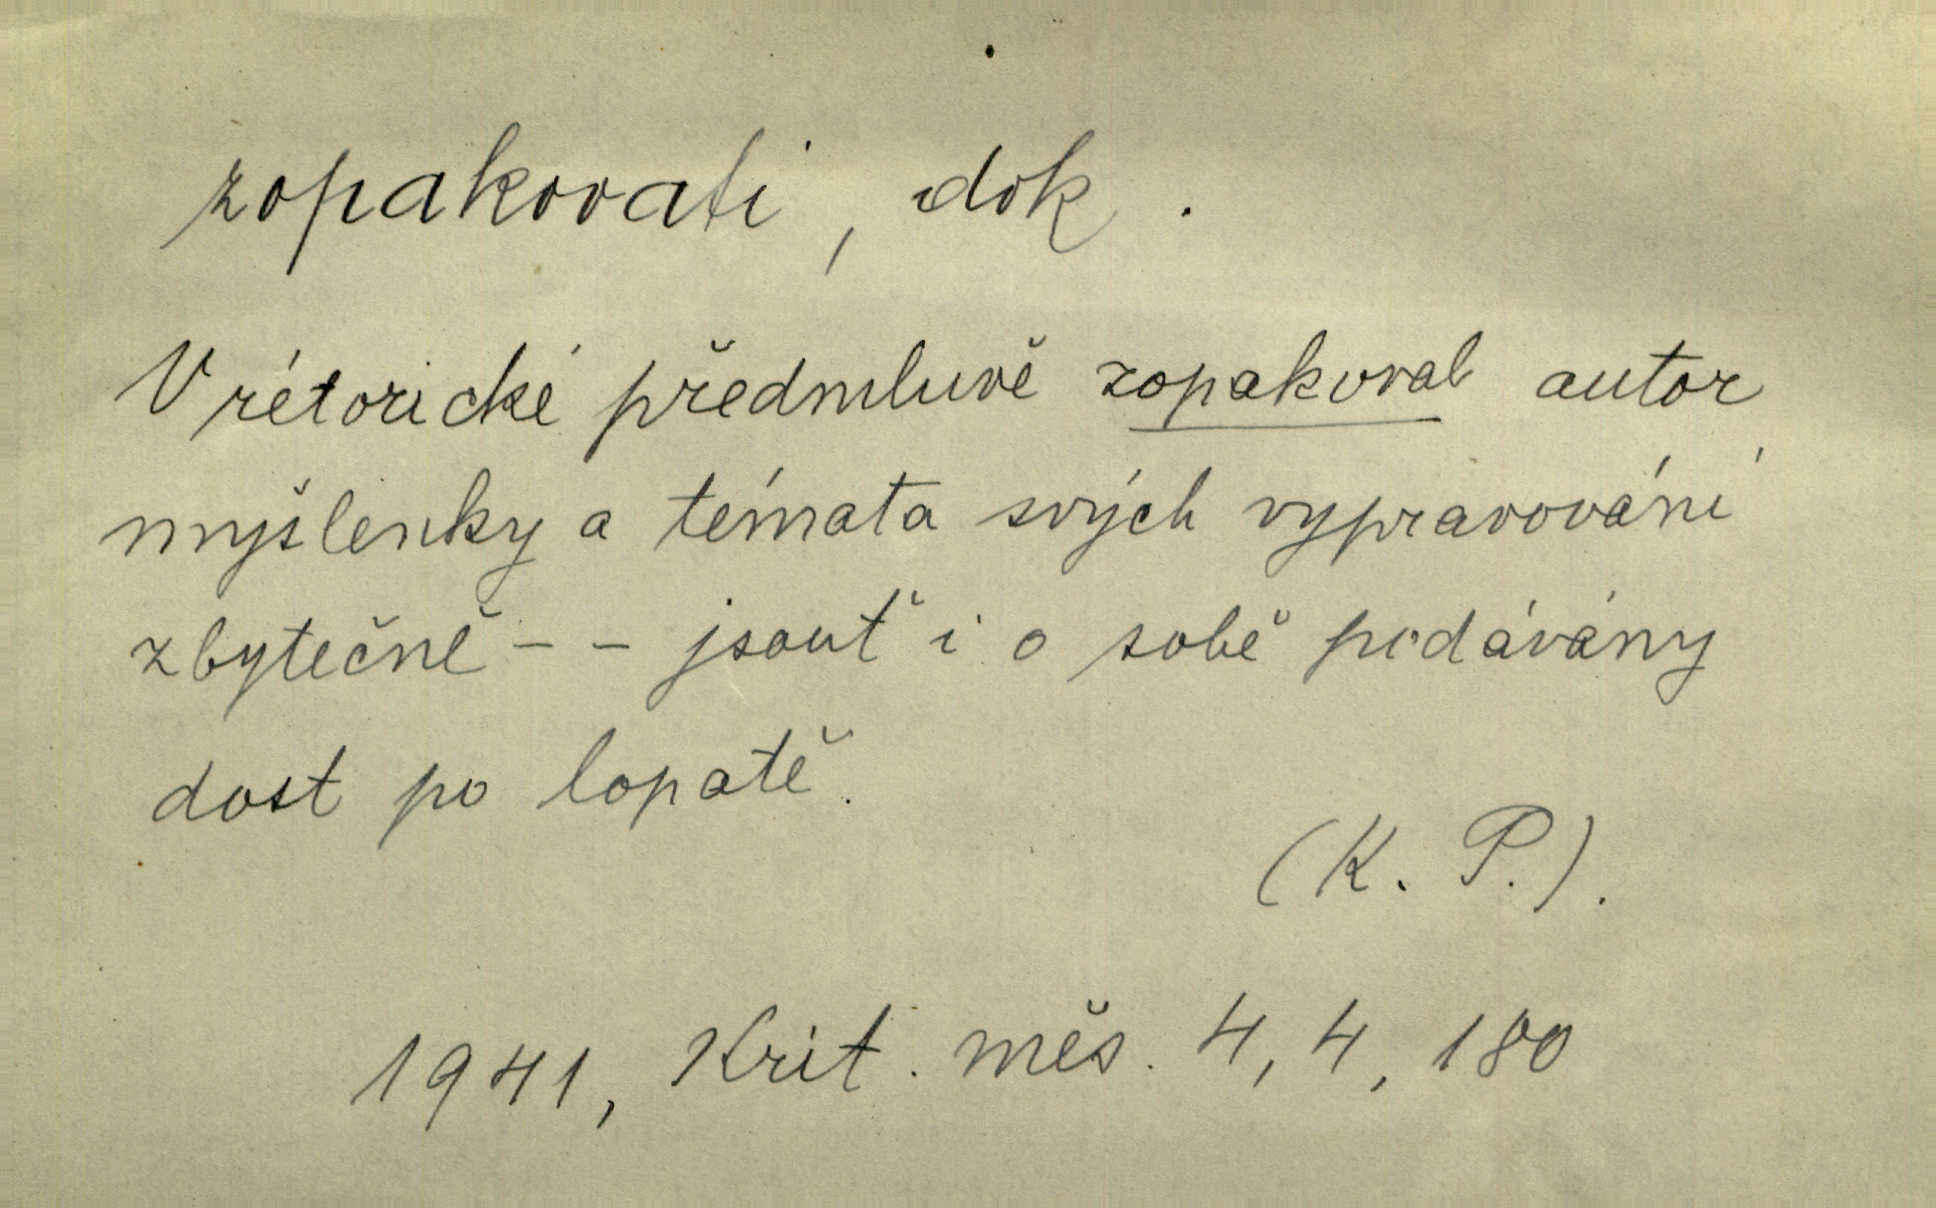 zopakovati, dok.
V rétorické předmluvě zopakoval autor
myšlenky a témata svých vypravování
zbytečně - - jsouť i o sobě podávány
dost po lopatě.
(K. P.).
1941, Krit. měs. 4, 4, 180